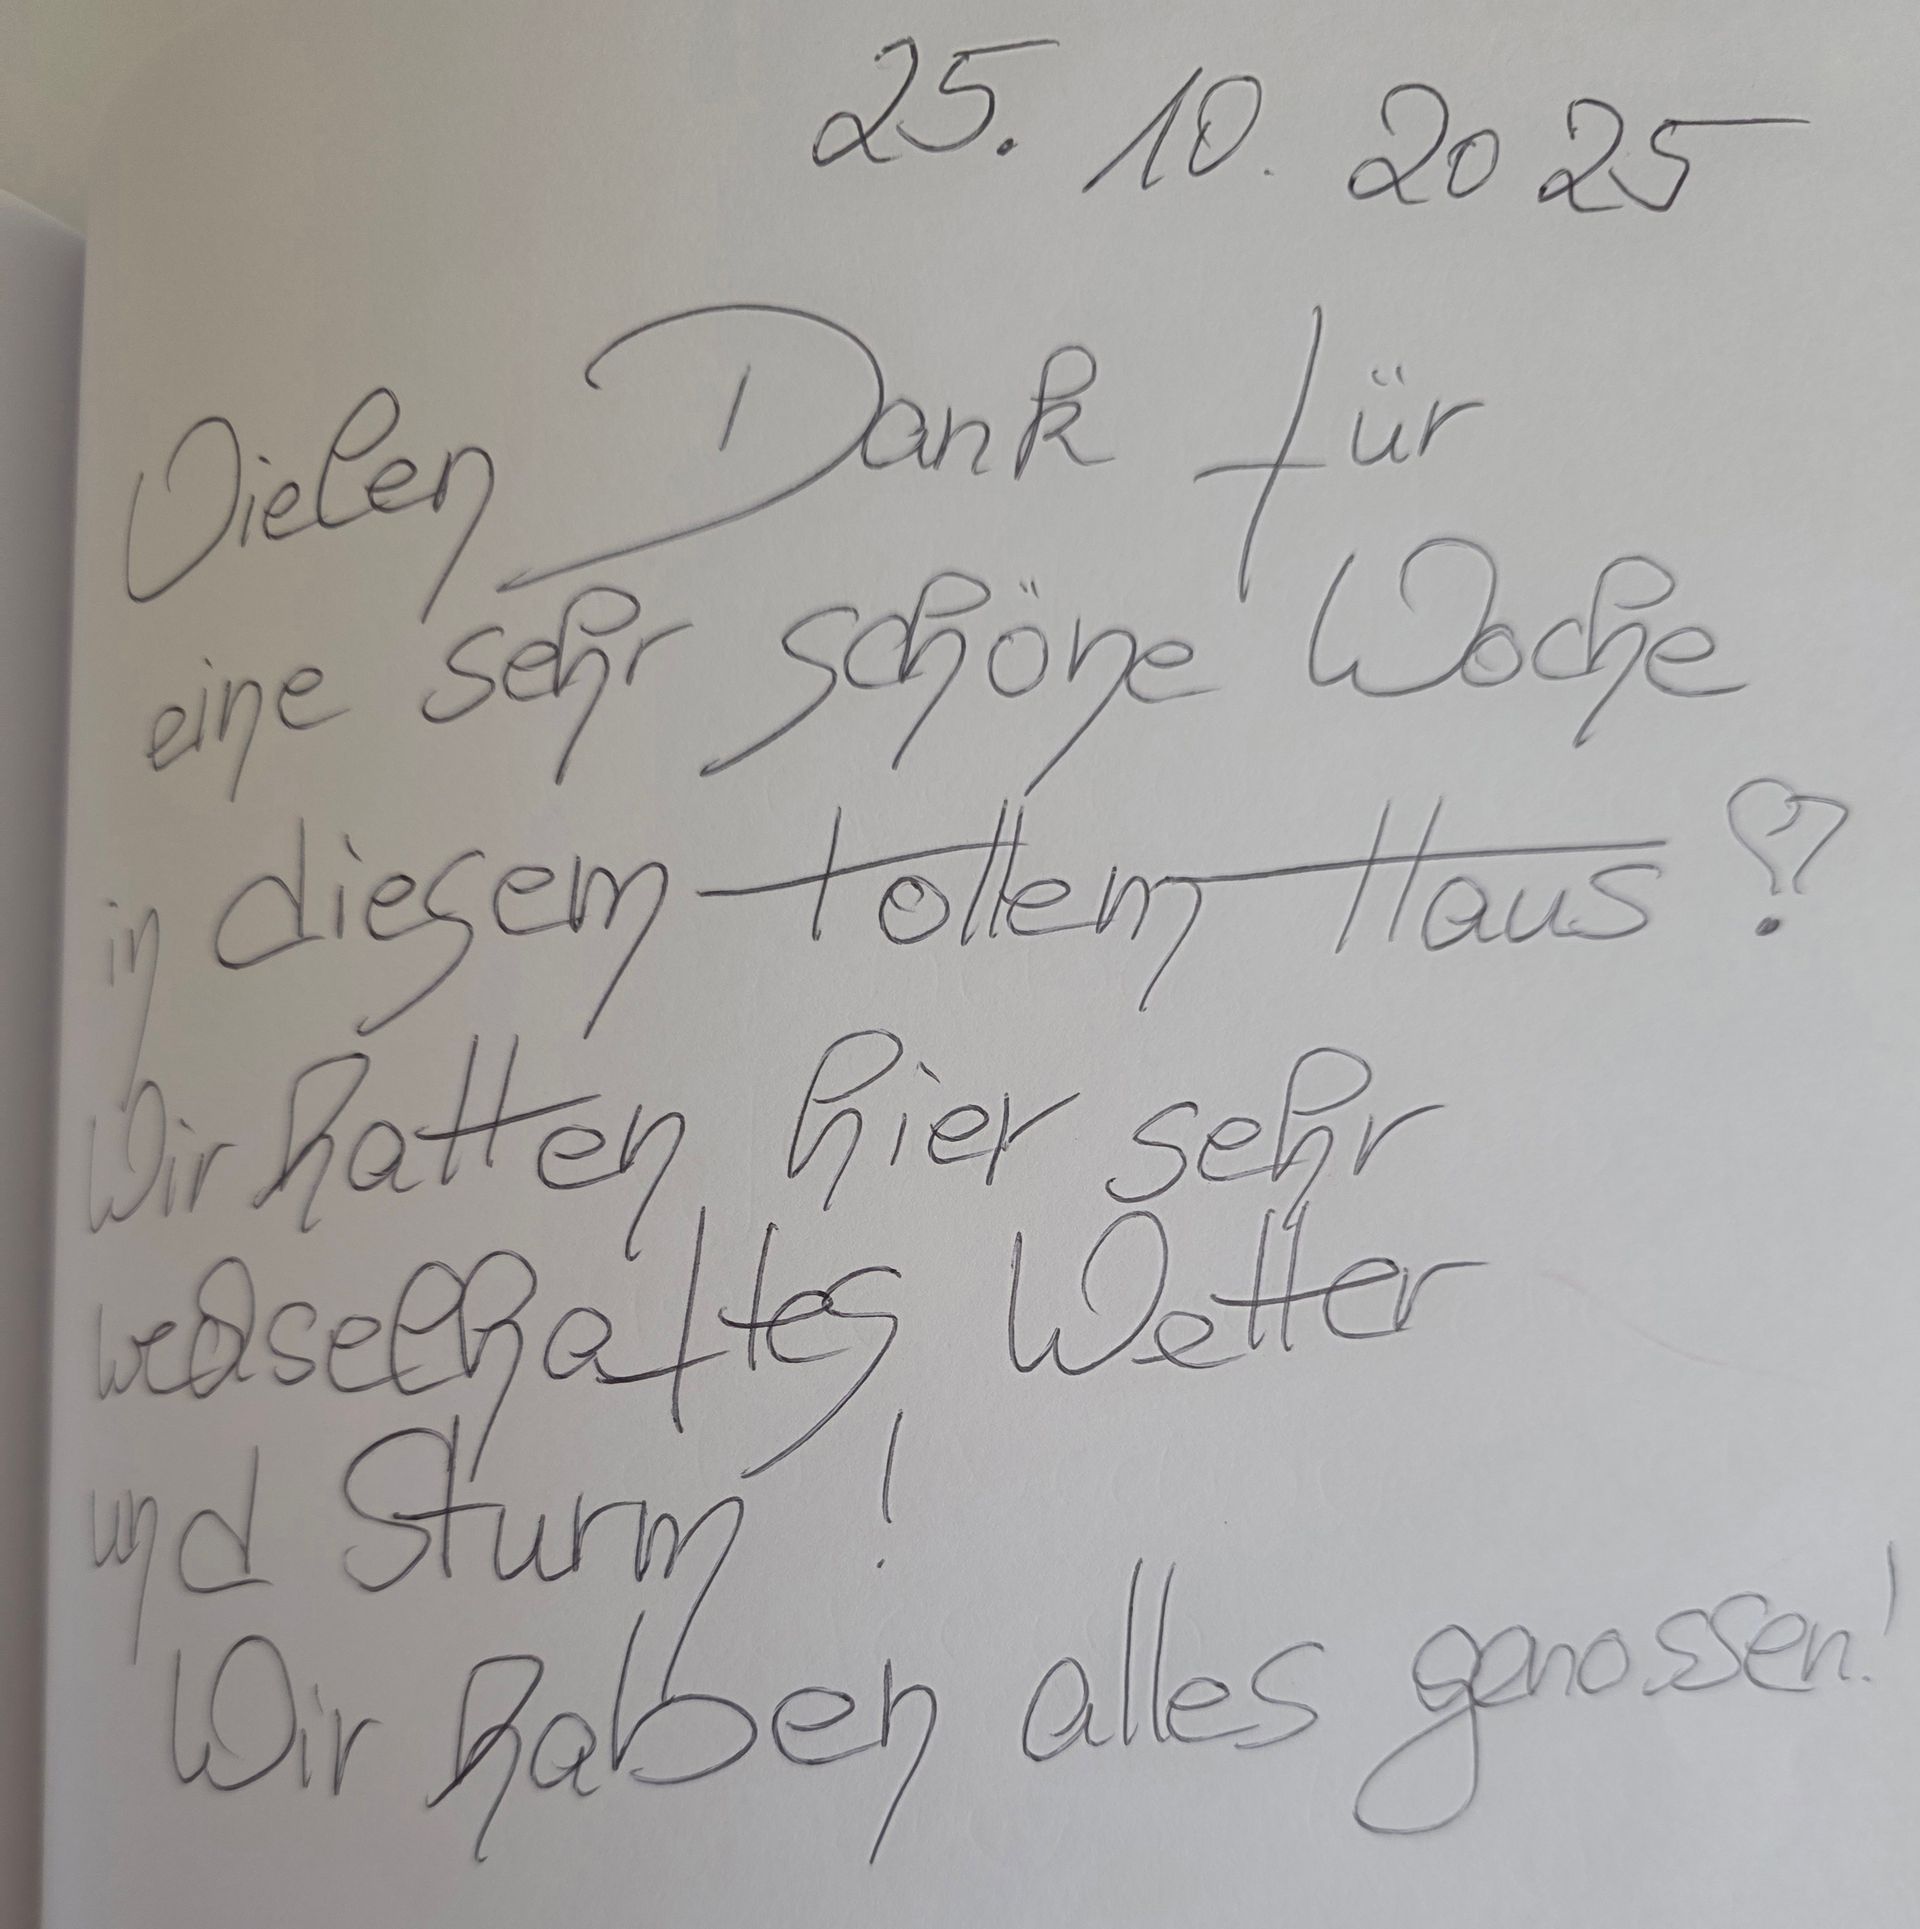 25. 10. 2025
Vielen Dank für
eine sehr schöne Woche
in diesem tollem Haus!
Wir hatten hier sehr
wechselhaftes Wetter
und Sturm!
Wir haben alles genossen!